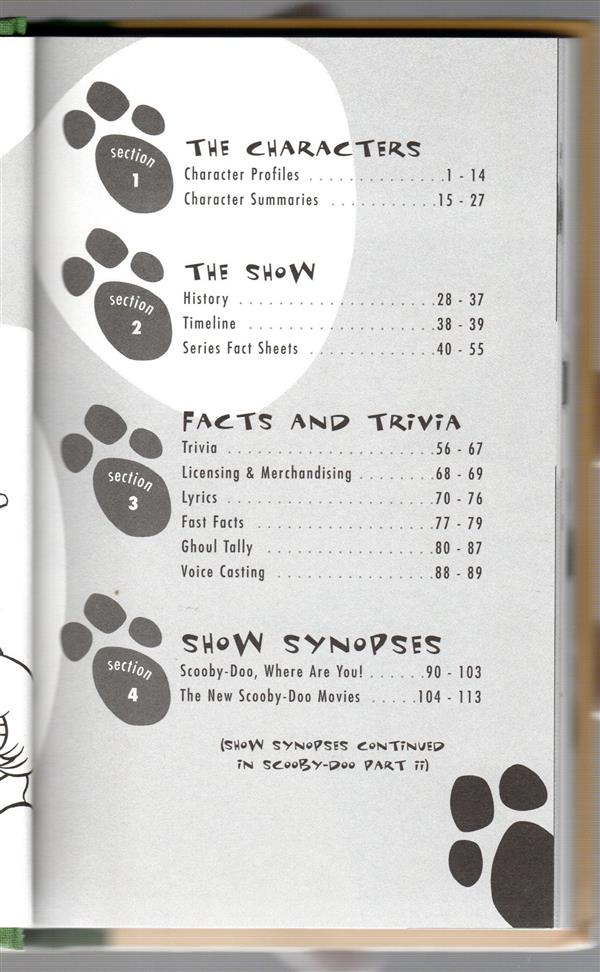 section
1
THE CHARACTERS
Character Profiles . . . . . . . . . . . . . .1 - 14
Character Summaries . . . . . . . . . . .15 - 27
section
2
THE SHOW
History . . . . . . . . . . . . . . . . . . . .28 - 37
Timeline . . . . . . . . . . . . . . . . . . .38 - 39
Series Fact Sheets . . . . . . . . . . . . .40 - 55
section
3
FACTS AND TRiViA
Trivia . . . . . . . . . . . . . . . . . . . . .56 - 67
Licensing & Merchandising . . . . . . . .68 - 69
Lyrics . . . . . . . . . . . . . . . . . . . . .70 - 76
Fast Facts . . . . . . . . . . . . . . . . . .77 - 79
Ghoul Tally . . . . . . . . . . . . . . . . .80 - 87
Voice Casting . . . . . . . . . . . . . . . .88 - 89
section
4
SHOW SYNOPSES
Scooby-Doo, Where Are You! . . . . . .90 - 103
The New Scooby-Doo Movies . . . . .104 - 113
(SHOW SYNOPSES CONTINUED
iN SCOOBY-DOO PART ii)